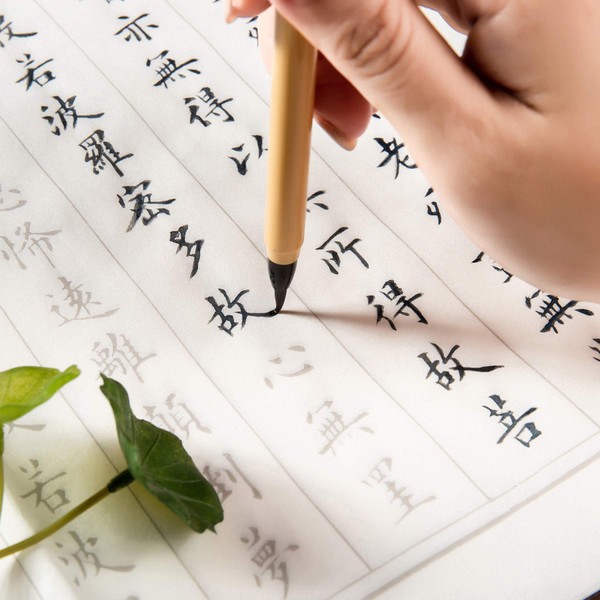 老
無
亦無得以
所得故菩
般若波羅密多故心無罣
怖遠離顛倒夢
若波